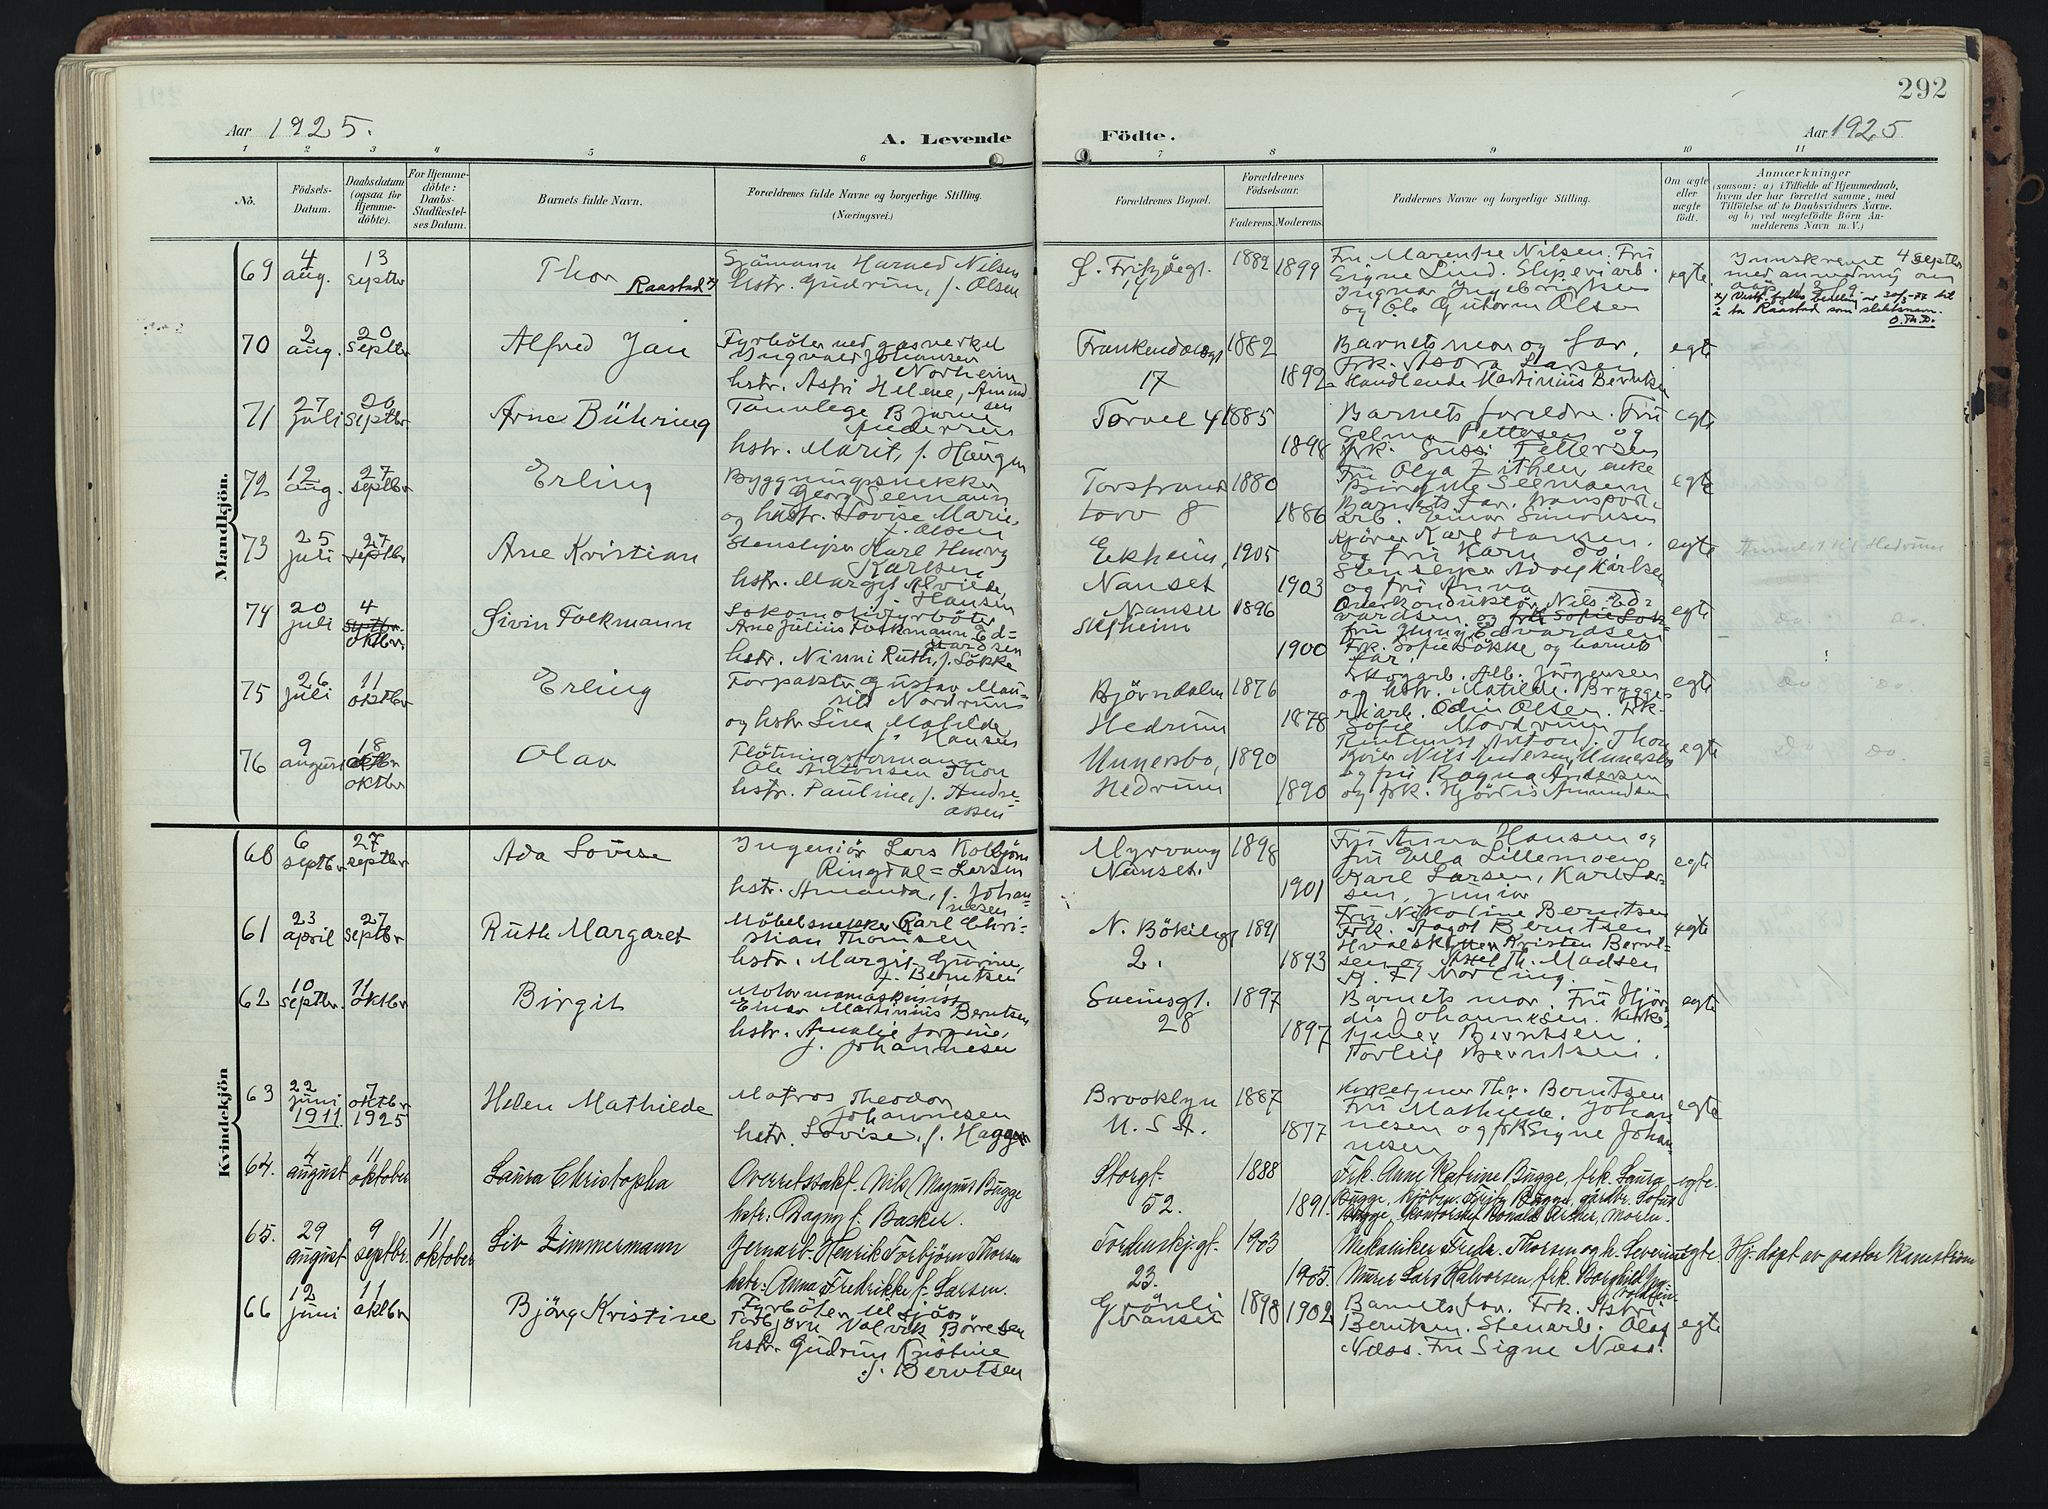 292
Aar 1925.
A. Levende Födte.
Aar 1925
1 2 3 4 5 6 7 8 9 10 11
No.
Födsels-Datum.
Daabsdatum (ogsaa for Hjemme-döbte).
For Hjemme-döbte: Daabs-Stadfæstel-ses Datum.
Barnets fulde Navn.
Forældrenes fulde Navne og borgerlige Stilling. (Næringsvei.)
Forældrenes Bopæl.
Forældrenes Födselsaar.
Faderens. Moderens.
Faddernes Navne og borgerlige Stilling.
Om ægte eller uægte födt.
Anmærkninger
(saasom: a) i Tilfælde af Hjemmedaab, hvem der har forrettet samme, med Tilföielse af to Daabsvidners Navne, og b) ved uægtefödte Börn An-melderens Navn m. V.)
Mandkjön.
69 4 aug. 13 septbr Thor Raastad x)
Sjömann Harned Nilsen
hstr. Gudrun, f. Olsen
Ö. Fritzöegt. 14 1882 1899
Fru Marentse Nilsen. Fru
Signe Lind. Slipeviarb.
Ingvar Ingebrigtsen
og Ole Guttorm Olsen
egte
4 septbr
O. Th. D.
70 2 aug. 20 septbr Alfred Jan
Fyrböter ved gasverket
Yngvald Johansen
Norheim
hstr. Astri Helene, Amundsen
17 1882 1892
Barnets mor og far,
Frk. Asora Larsen
Handlende Martinius Berntsen
egte
71 27 juli 20 septbr Arne Bühring
Tannlege Bjarne
Andersen
hstr. Marit, f. Haugen
Torvet 4 1885 1898
Barnets foreldre. Fru
Selma Pettersen og
frk. Sussi Pettersen
egte
72 12 aug. 27 septbr Erling
Byggningssnekker
Georg Seemann
og hustr. Lovise Marie,
f. Olsen
Torstrand
torv 8 1880 1886
Fru Olga Zithen, enke
Birgitte Seemann
Barnets far, transport-
arb. Einar Simonsen
egte
73 25 juli 27 septbr Arne Kristian
Stensliper Karl Henry
Karlsen
hstr. Margit Alvilde,
f. Hansen
Ekheim,
Nanset 1905 1903
Kjörer Karl Hansen.
og fru Karn do.
Stensliper Adolf Karlsen
og fru Anna
egte
Anmeldt til Hedrum
74 20 juli 4 septbr. oktbr. Sivin Folkmann
Lokomotivfyrböter
Arne Julius Folkmann Ed=
vardsen
hstr. Ninni Ruth, f. Lökke
Nanset
Solheim 1896 1900
Overkonduktör Nils Ed=
vardsen og
Fru Jenny Edvardsen
Frk. Sofie Lökke og barnets
far.
egte
do. do.
75 26 juli 11 oktbr Erling
Forpakter Gustav Mau-
ritz Nordrum
og hstr Lina Matilde,
f. Hansen
Björndalen
Hedrum 1876 1878
Skogarb. Alb. Jörgensen
og hstr. Matilde. Brygge-
riarb. Odin Olsen. Frk.
Sofie Nordrum
egte
do do.
76 9 august 18 oktbr Olav
Flötningsformann
Ole Antonsen Thon
hstr. Pauline, f. Andre-
assen
Unnersbo,
Hedrum 1890 1890
Anton J. Thon
Kjörer Nils Andersen Unnersbo
og fru Ragna Andersen
og frk. Hjördis Amundsen
egte
do do.
Kvindekjön
60 6 septbr 27 septbr Ada Lovise
Ingeniör Lars Kolbjörn
Ringdal=Larsen
hstr. Amanda, f. Johan-
nesen
Myrvang
Nanset. 1898 1901
Fru Anna Hansen og
fru Ella Lillemoen
Karl Larsen, Karl Lar-
sen, junior
egte
61 23 april 27 septbr Ruth Margaret
Möbelsnekker Karl Chri-
stian Thomsen
hstr. Margit Gurine,
f. Berntsen
N. Bökeligt
2. 1891 1893
Fru Nikoline Berntsen
Frk. Aagot Berntsen
Hvalskytter Kristen Bernt-
sen og Th. Madsen
Norling.
egte
62 10 septbr. 11 oktbr Birgit
Motormannmaskinist
Einar Martinius Berntsen
hstr. Amalie Jorgine,
f. Johannesen
Sveinsgt.
28 1897 1897
Barnets mor. Fru Hjör-
dis Johannesen. Kirke-
tjener Berntsen.
Torleif Berntsen.
egte
63 22 juni 1911. 7 oktbr 1925 Helen Mathilde
Matros Theodor
Johannesen
hstr. Lovise, f. Haggen
Brooklyn
U. S. A. 1887 1877
Kirketjener Thr. Berntsen
Fru Mathilde Johan-
nesen og frk Signe Johan-
nesen
egte
64. 4 august 11 oktober Laura Christopha
Overretssakf. Nils Magnus Bugge
hstr: Dagny f. Backer.
Storgt.
52. 1888 1891
Frk. Anne Katrine Bugge, frk. Laura
Bugge, Kjöbm. Fritz Bugge, gardbr. Lotus
Bugge, Kontorchef Ronald Archer, Moren.
egte.
65. 29 august 9 septbr. 11 oktober Liv Zimmermann
Jernarb. Henrik Torbjörn Thorsen
hstr: Anna Fredrikke f. Larsen.
Tordenskj.gt.
23. 1903 1905
Mekaniker Fredr. Thorsen og h. Severine
Murer Lars Halvorsen frk. Borghild
egte.
Hj. döpt av pastor Kamstrup
66 12 juni 11 oktbr Björg Kristine
Fyrböter til sjös
Torbjörn Valvik Börresen
hstr. Gudrun Kristine
f. Berntsen
Grönli
Nanset 1898 1902
Barnets far. Frk. Astri
Berntsen. Stenarb. Olaf
Næss. Fru Signe Næss.
egte